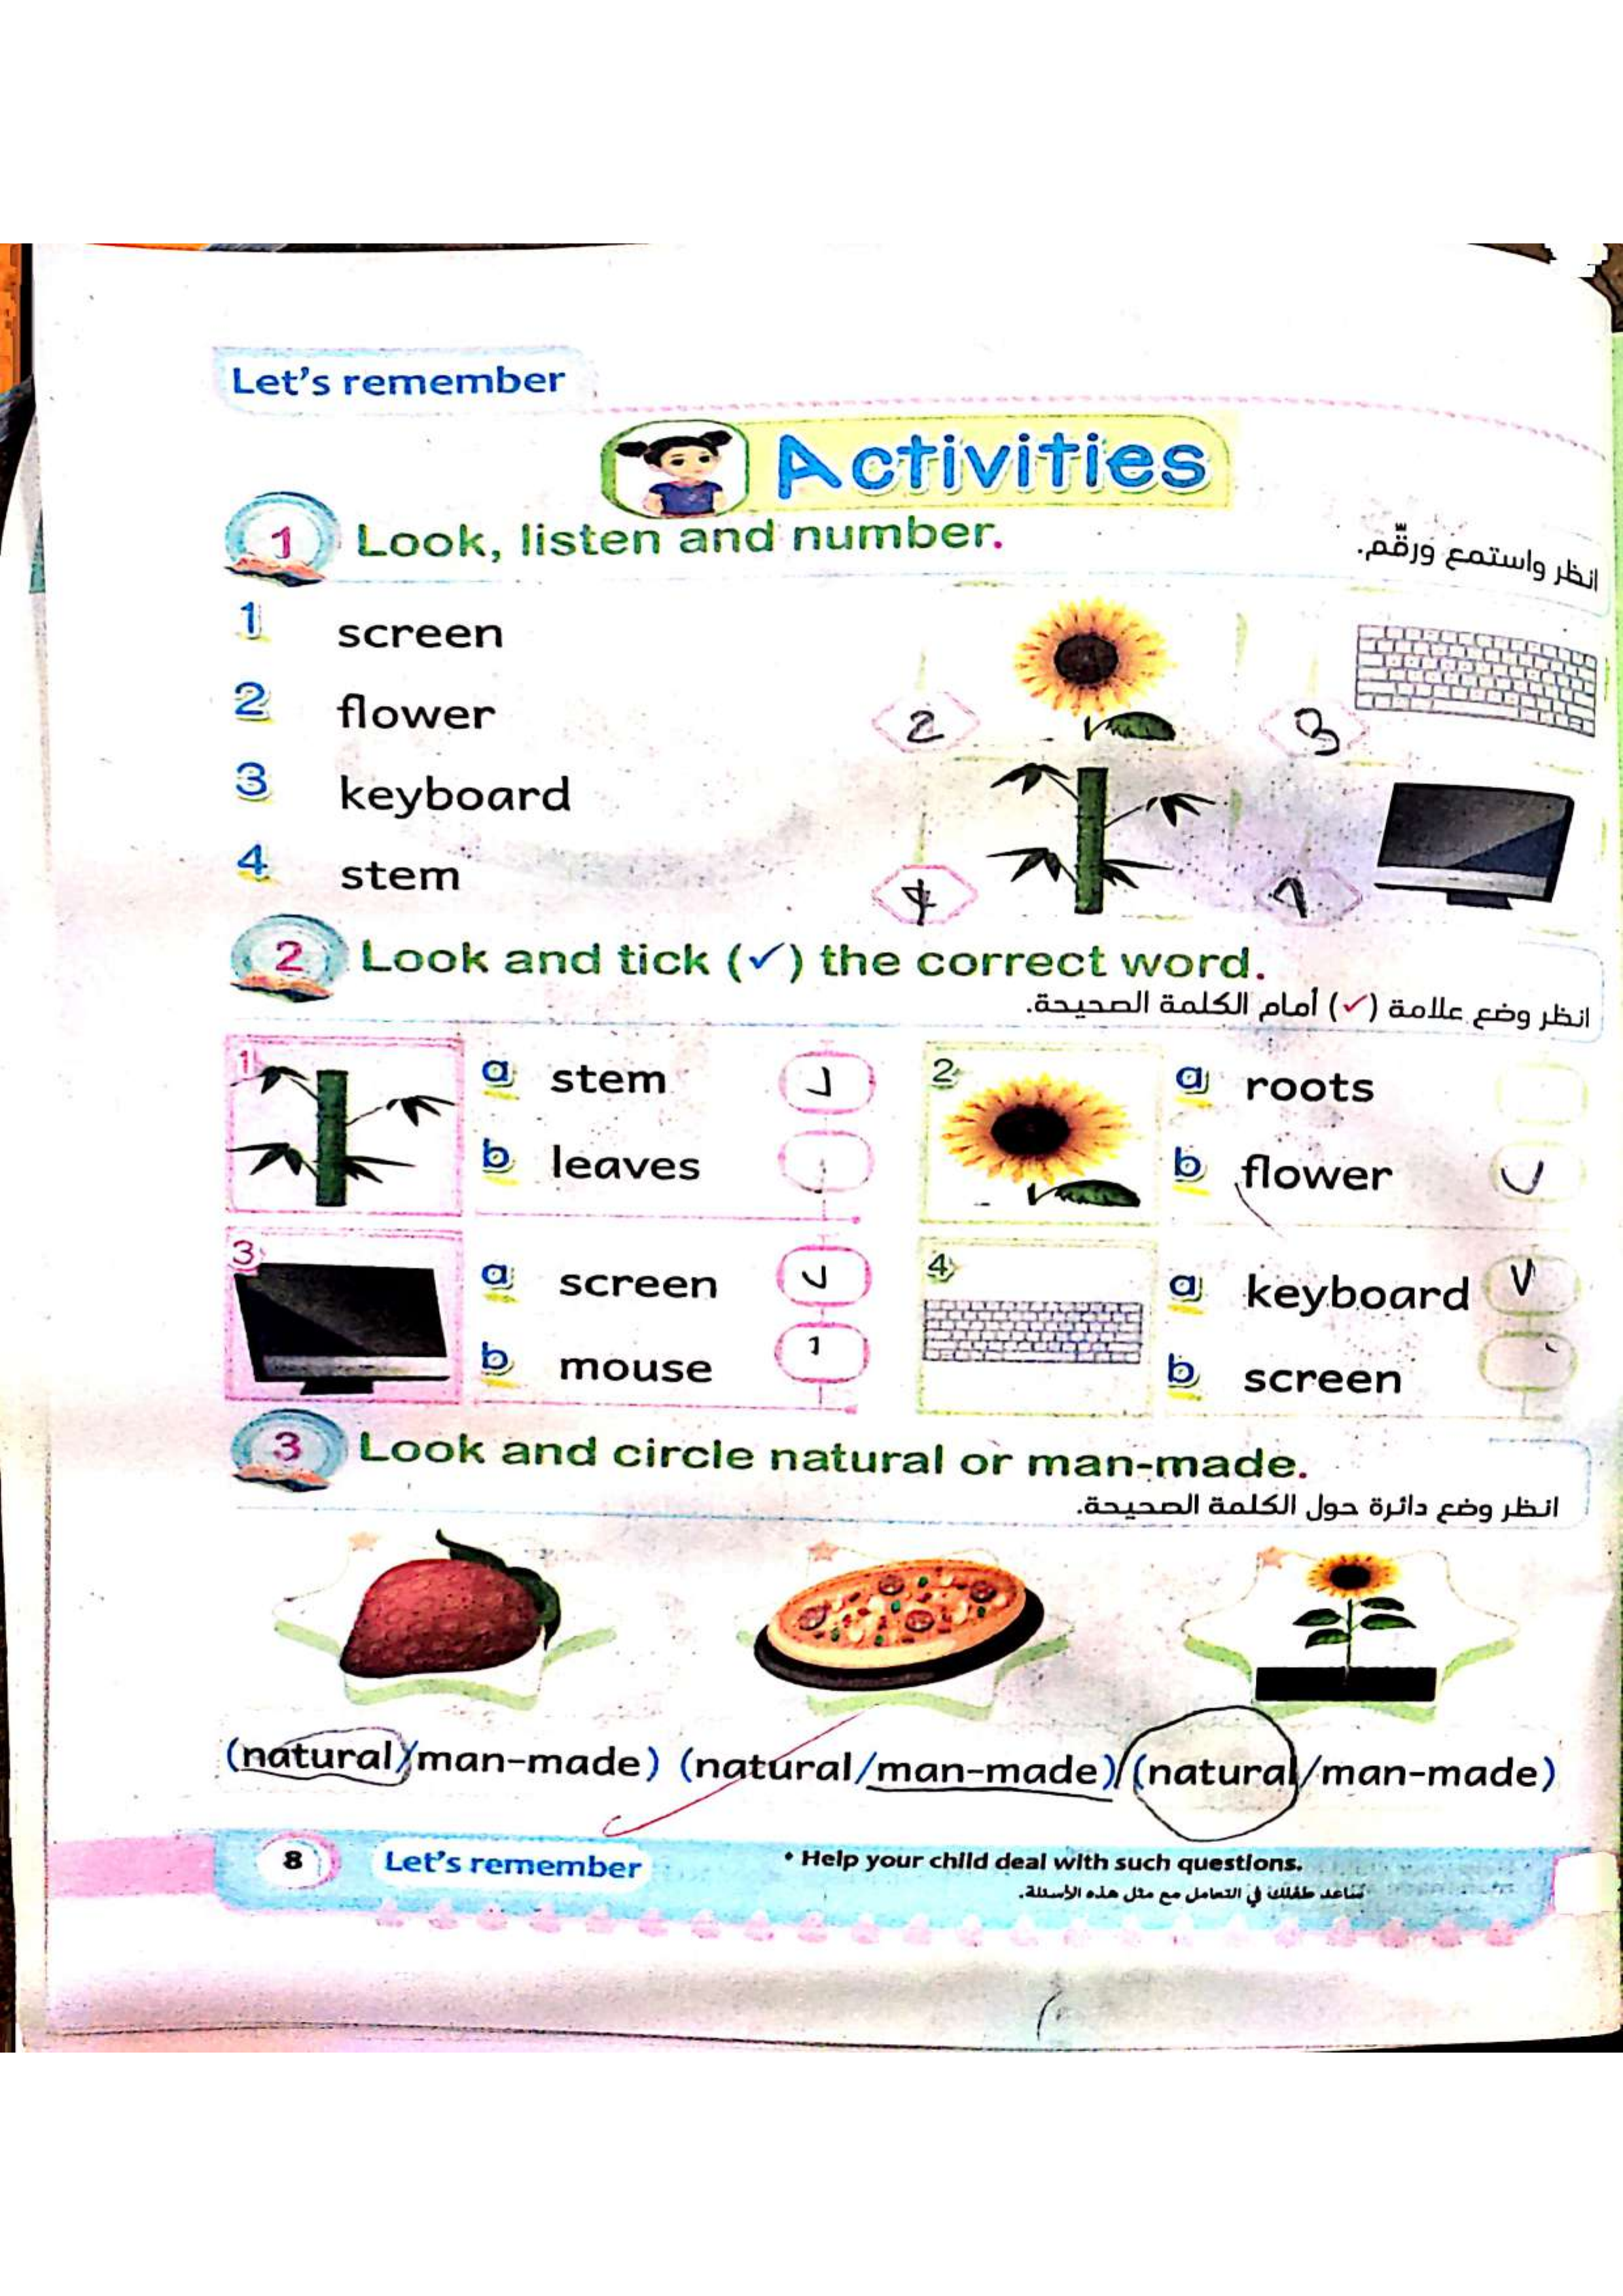 Let's remember
Activities
1 Look, listen and number.
انظر واستمع ورقّم.
1 screen
2 flower
3 keyboard
4 stem
2 3
4 1
2 Look and tick (✓) the correct word.
انظر وضع علامة (✓) أمام الكلمة الصحيحة.
1 a stem ✓
b leaves
2 a roots
b flower ✓
3 a screen ✓
b mouse
4 a keyboard ✓
b screen
3 Look and circle natural or man-made.
انظر وضع دائرة حول الكلمة الصحيحة.
(natural/man-made) (natural/man-made) (natural/man-made)
8 Let's remember
• Help your child deal with such questions.
ساعد طفلك في التعامل مع مثل هذه الأسئلة.